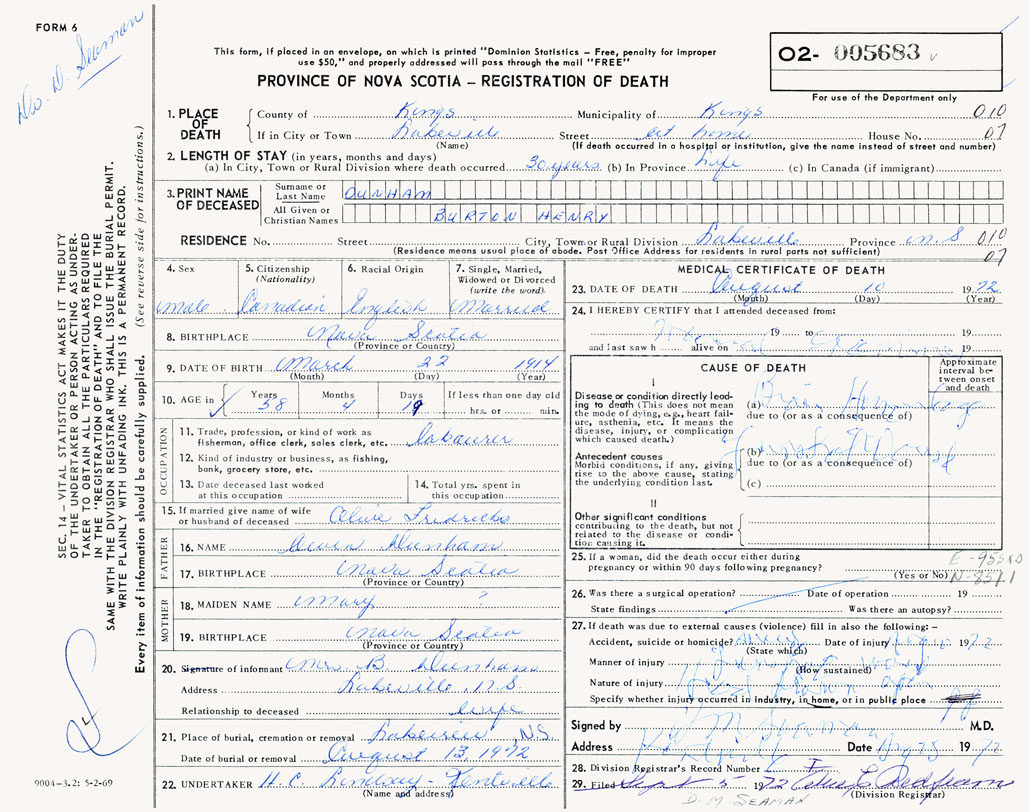 FORM 6
Dr. D. Seaman
This form, if placed in an envelope, on which is printed "Dominion Statistics – Free, penalty for improper
use $50," and properly addressed will pass through the mail "FREE"
PROVINCE OF NOVA SCOTIA – REGISTRATION OF DEATH
02- 005683
For use of the Department only
SEC. 14 – VITAL STATISTICS ACT MAKES IT THE DUTY
OF THE UNDERTAKER OR PERSON ACTING AS UNDER-
TAKER TO OBTAIN ALL THE PARTICULARS REQUIRED
IN THE "REGISTRATION OF DEATH" AND TO FILE THE
SAME WITH THE DIVISION REGISTRAR WHO SHALL ISSUE THE BURIAL PERMIT.
WRITE PLAINLY WITH UNFADING INK. THIS IS A PERMANENT RECORD.
Every item of information should be carefully supplied. (See reverse side for instructions.)
9004-3.2: 5-2-69
1. PLACE OF DEATH
County of Kings Municipality of Kings 010
If in City or Town Lakeville Street at home House No. 07
(Name) (If death occurred in a hospital or institution, give the name instead of street and number)
2. LENGTH OF STAY (in years, months and days)
(a) In City, Town or Rural Division where death occurred 30 years (b) In Province Life (c) In Canada (if immigrant)
3. PRINT NAME OF DECEASED
Surname or Last Name DUNHAM
All Given or Christian Names BURTON HENRY
RESIDENCE No. Street City, Town or Rural Division Lakeville Province N.S 010
(Residence means usual place of abode. Post Office Address for residents in rural parts not sufficient) 07
4. Sex male
5. Citizenship (Nationality) Canadian
6. Racial Origin English
7. Single, Married, Widowed or Divorced (write the word) Married
8. BIRTHPLACE Nova Scotia
(Province or Country)
9. DATE OF BIRTH March 22 1914
(Month) (Day) (Year)
10. AGE in Years 58 Months 4 Days 19 If less than one day old hrs. or min.
OCCUPATION
11. Trade, profession, or kind of work as
fisherman, office clerk, sales clerk, etc. labourer
12. Kind of industry or business, as fishing,
bank, grocery store, etc.
13. Date deceased last worked
at this occupation
14. Total yrs. spent in
this occupation
15. If married give name of wife
or husband of deceased Olive Fredricks
FATHER
16. NAME Dunham
17. BIRTHPLACE Nova Scotia
(Province or Country)
MOTHER
18. MAIDEN NAME Mary ?
19. BIRTHPLACE Nova Scotia
(Province or Country)
20. Signature of informant Mrs B Dunham
Address Lakeville, N.S.
Relationship to deceased wife
21. Place of burial, cremation or removal Lakeview, N.S.
Date of burial or removal August 13, 1972
22. UNDERTAKER H. C. Lindsay - Kentville
(Name and address)
MEDICAL CERTIFICATE OF DEATH
23. DATE OF DEATH August 10 1972
(Month) (Day) (Year)
24. I HEREBY CERTIFY that I attended deceased from:
19 to 19
and last saw h alive on 19
CAUSE OF DEATH
Approximate interval between onset and death
I
Disease or condition directly lead-
ing to death (This does not mean
the mode of dying, e.g., heart fail-
ure, asthenia, etc. It means the
disease, injury, or complication
which caused death.)
(a)
due to (or as a consequence of)
Antecedent causes
Morbid conditions, if any, giving
rise to the above cause, stating
the underlying condition last.
(b) Gunshot Wound
due to (or as a consequence of)
(c)
II
Other significant conditions
contributing to the death, but not
related to the disease or condi-
tion causing it.
25. If a woman, did the death occur either during
pregnancy or within 90 days following pregnancy?
(Yes or No)
26. Was there a surgical operation? Date of operation 19
State findings Was there an autopsy?
27. If death was due to external causes (violence) fill in also the following: –
Accident, suicide or homicide? Date of injury 1972
(State which)
Manner of injury Gunshot wound
(How sustained)
Nature of injury
Specify whether injury occurred in industry, in home, or in public place
Signed by D M Seaman M.D.
Address Date 1972
28. Division Registrar's Record Number
29. Filed Sept 5 1972
(Division Registrar)
D. M. SEAMAN